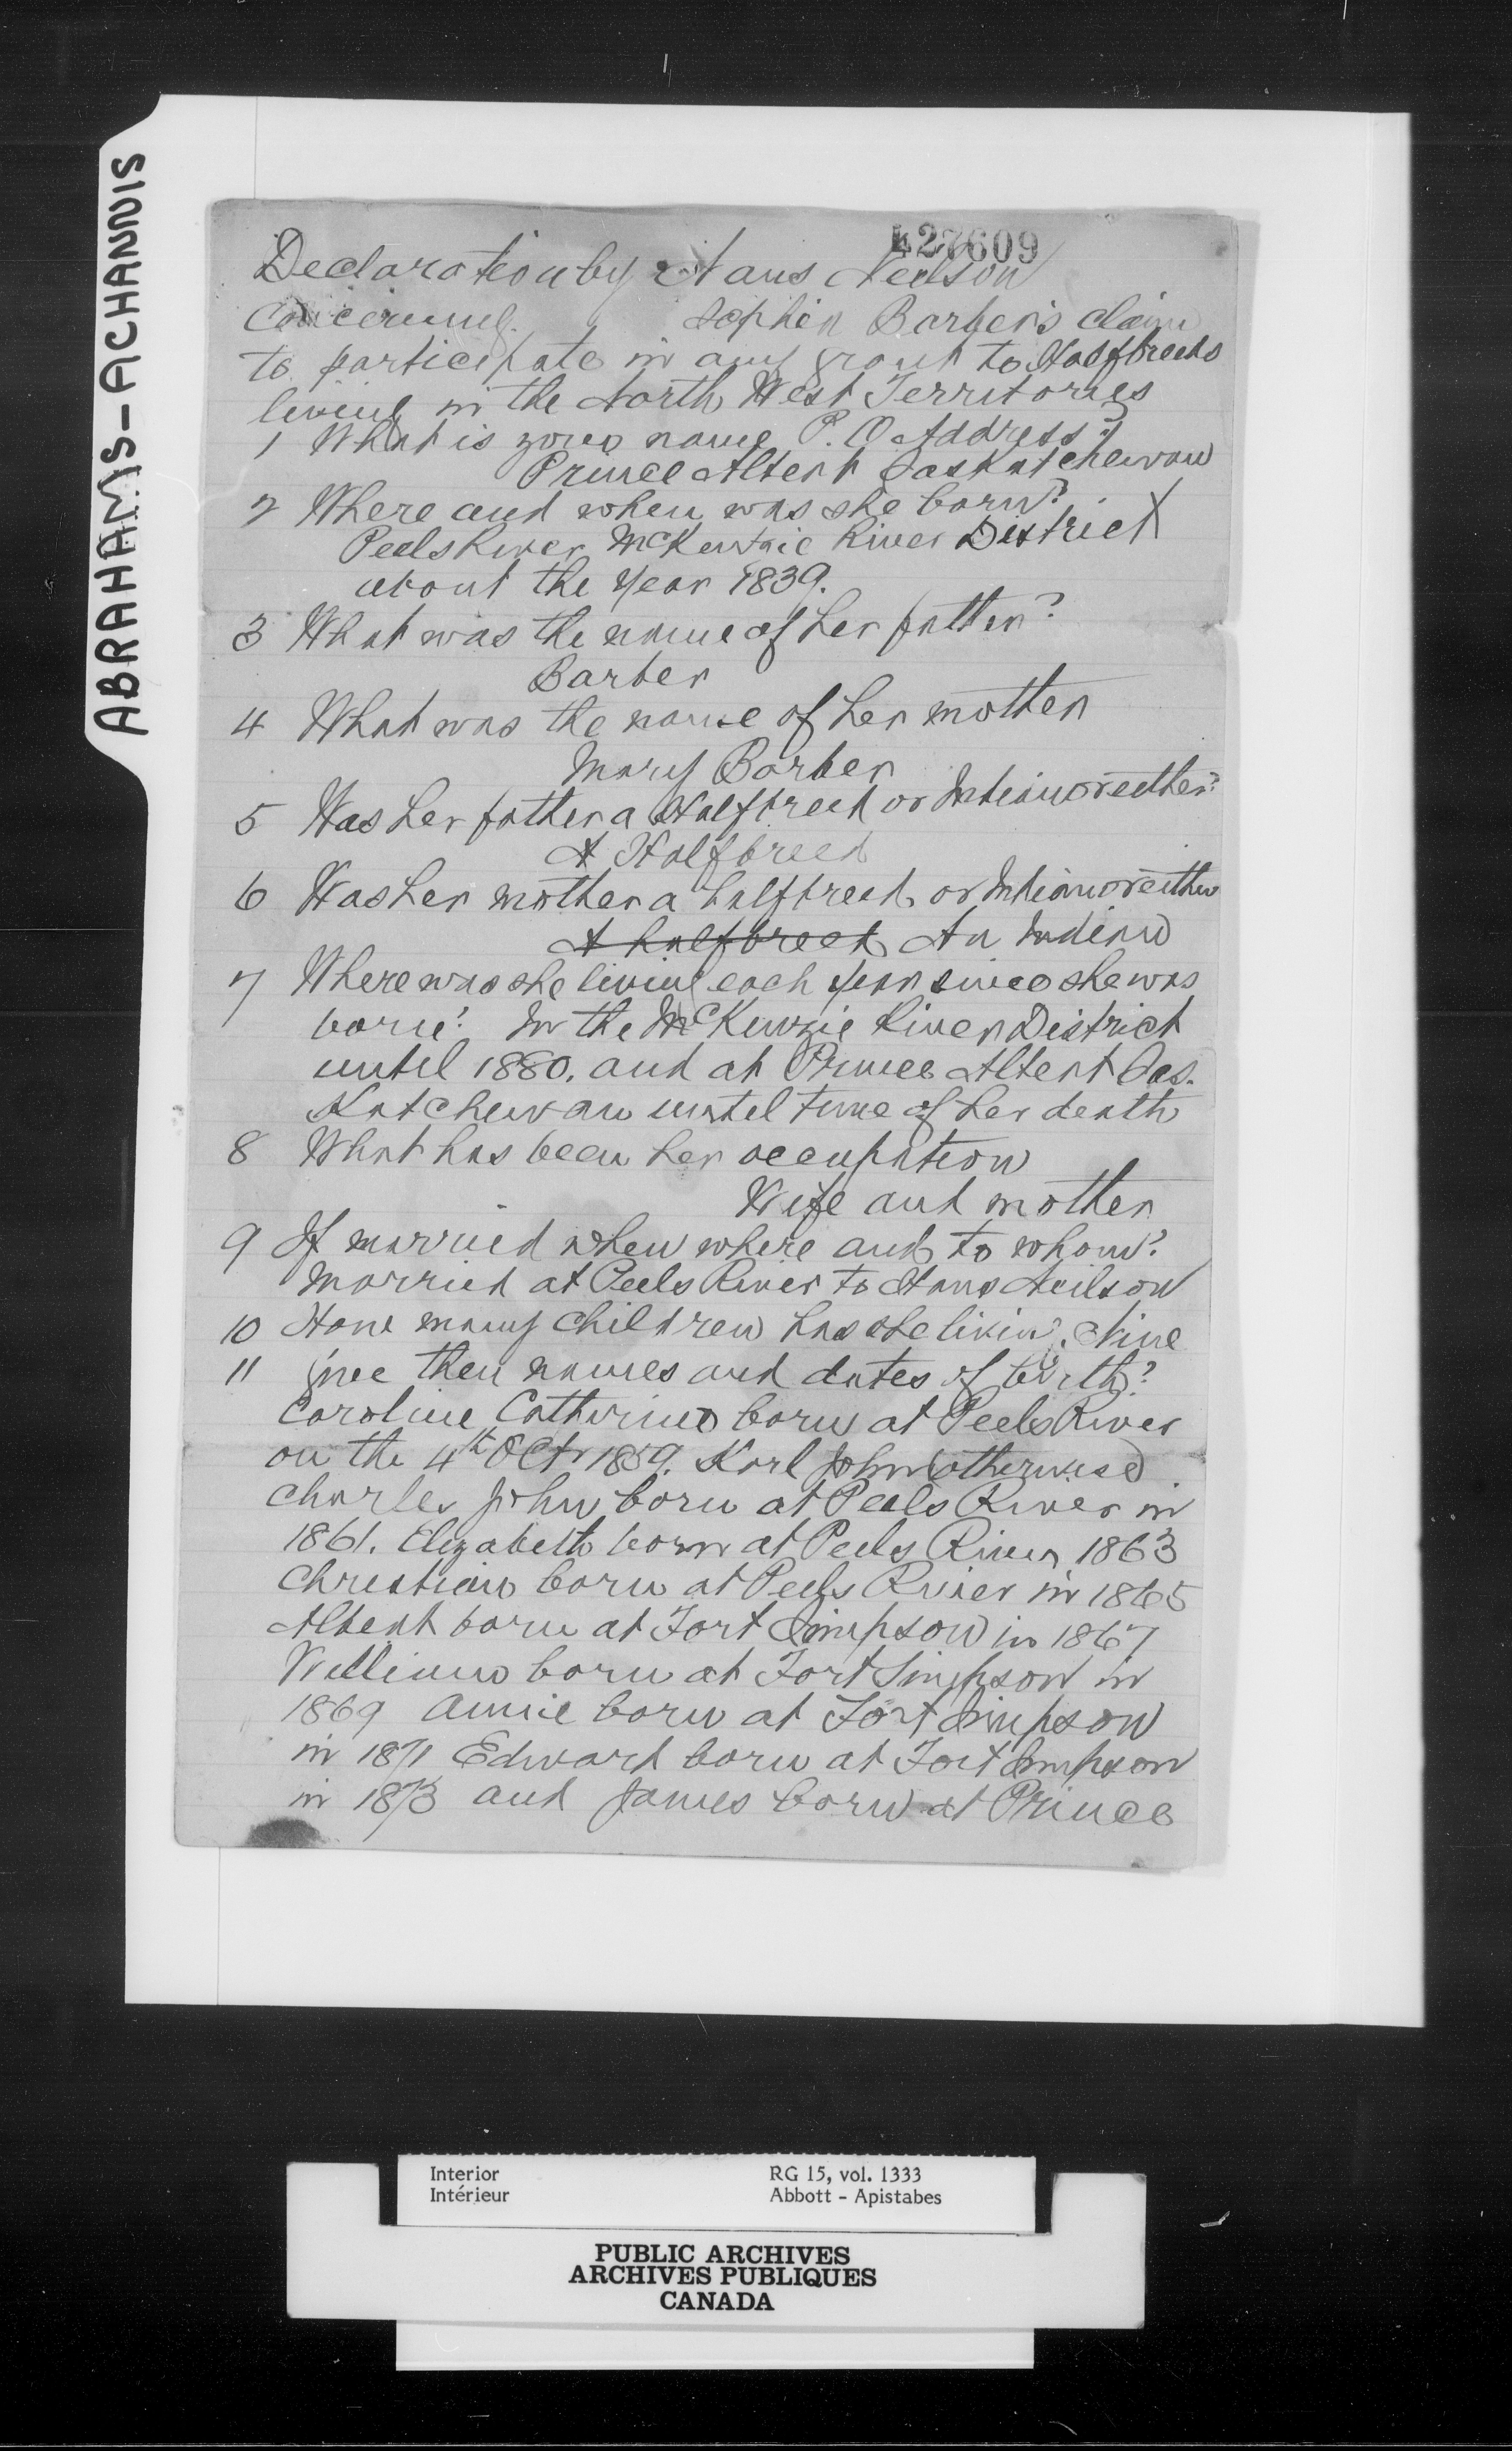 ABRAHAMS-ACHANNIS
427609
Declaration by Hans Neilson
Concerning Sophia Barber's claim
to participate in any grant to Halfbreeds
living in the North West Territories
1 What is your name P. O Address?
Prince Albert Saskatchewan
2 Where and when was she born?
Peels River McKenzie River District X
about the year 1839.
3 What was the name of her father?
Barber
4 What was the name of her mother
Mary Barber
5 Was her father a Halfbreed or Indian or either?
A Halfbreed
6 Was her mother a halfbreed or Indian or either
A halfbreed An Indian
7 Where was she living each year since she was
born? In the McKenzie River District
until 1880. and at Prince Albert Sas.
Katchewan until time of her death
8 What has been her occupation
Wife and mother
9 If married when where and to whom?
Married at Peels River to Hans Neilson
10 How many children has she livin. Nine
11 Give their names and dates of birth?
Caroline Catherine born at Peels River
on the 4th Octr 1859. Karl John (otherwise)
Charles John born at Peels River in
1861. Elizabeth born at Peels River 1863
Christian born at Peels River in 1865
Albert born at Fort Simpson in 1867
William born at Fort Simpson in
1869 Annie born at Fort Simpson
in 1871 Edward born at Fort Simpson
in 1873 and James born at Prince
Interior RG 15, vol. 1333
Intérieur Abbott - Apistabes
PUBLIC ARCHIVES
ARCHIVES PUBLIQUES
CANADA